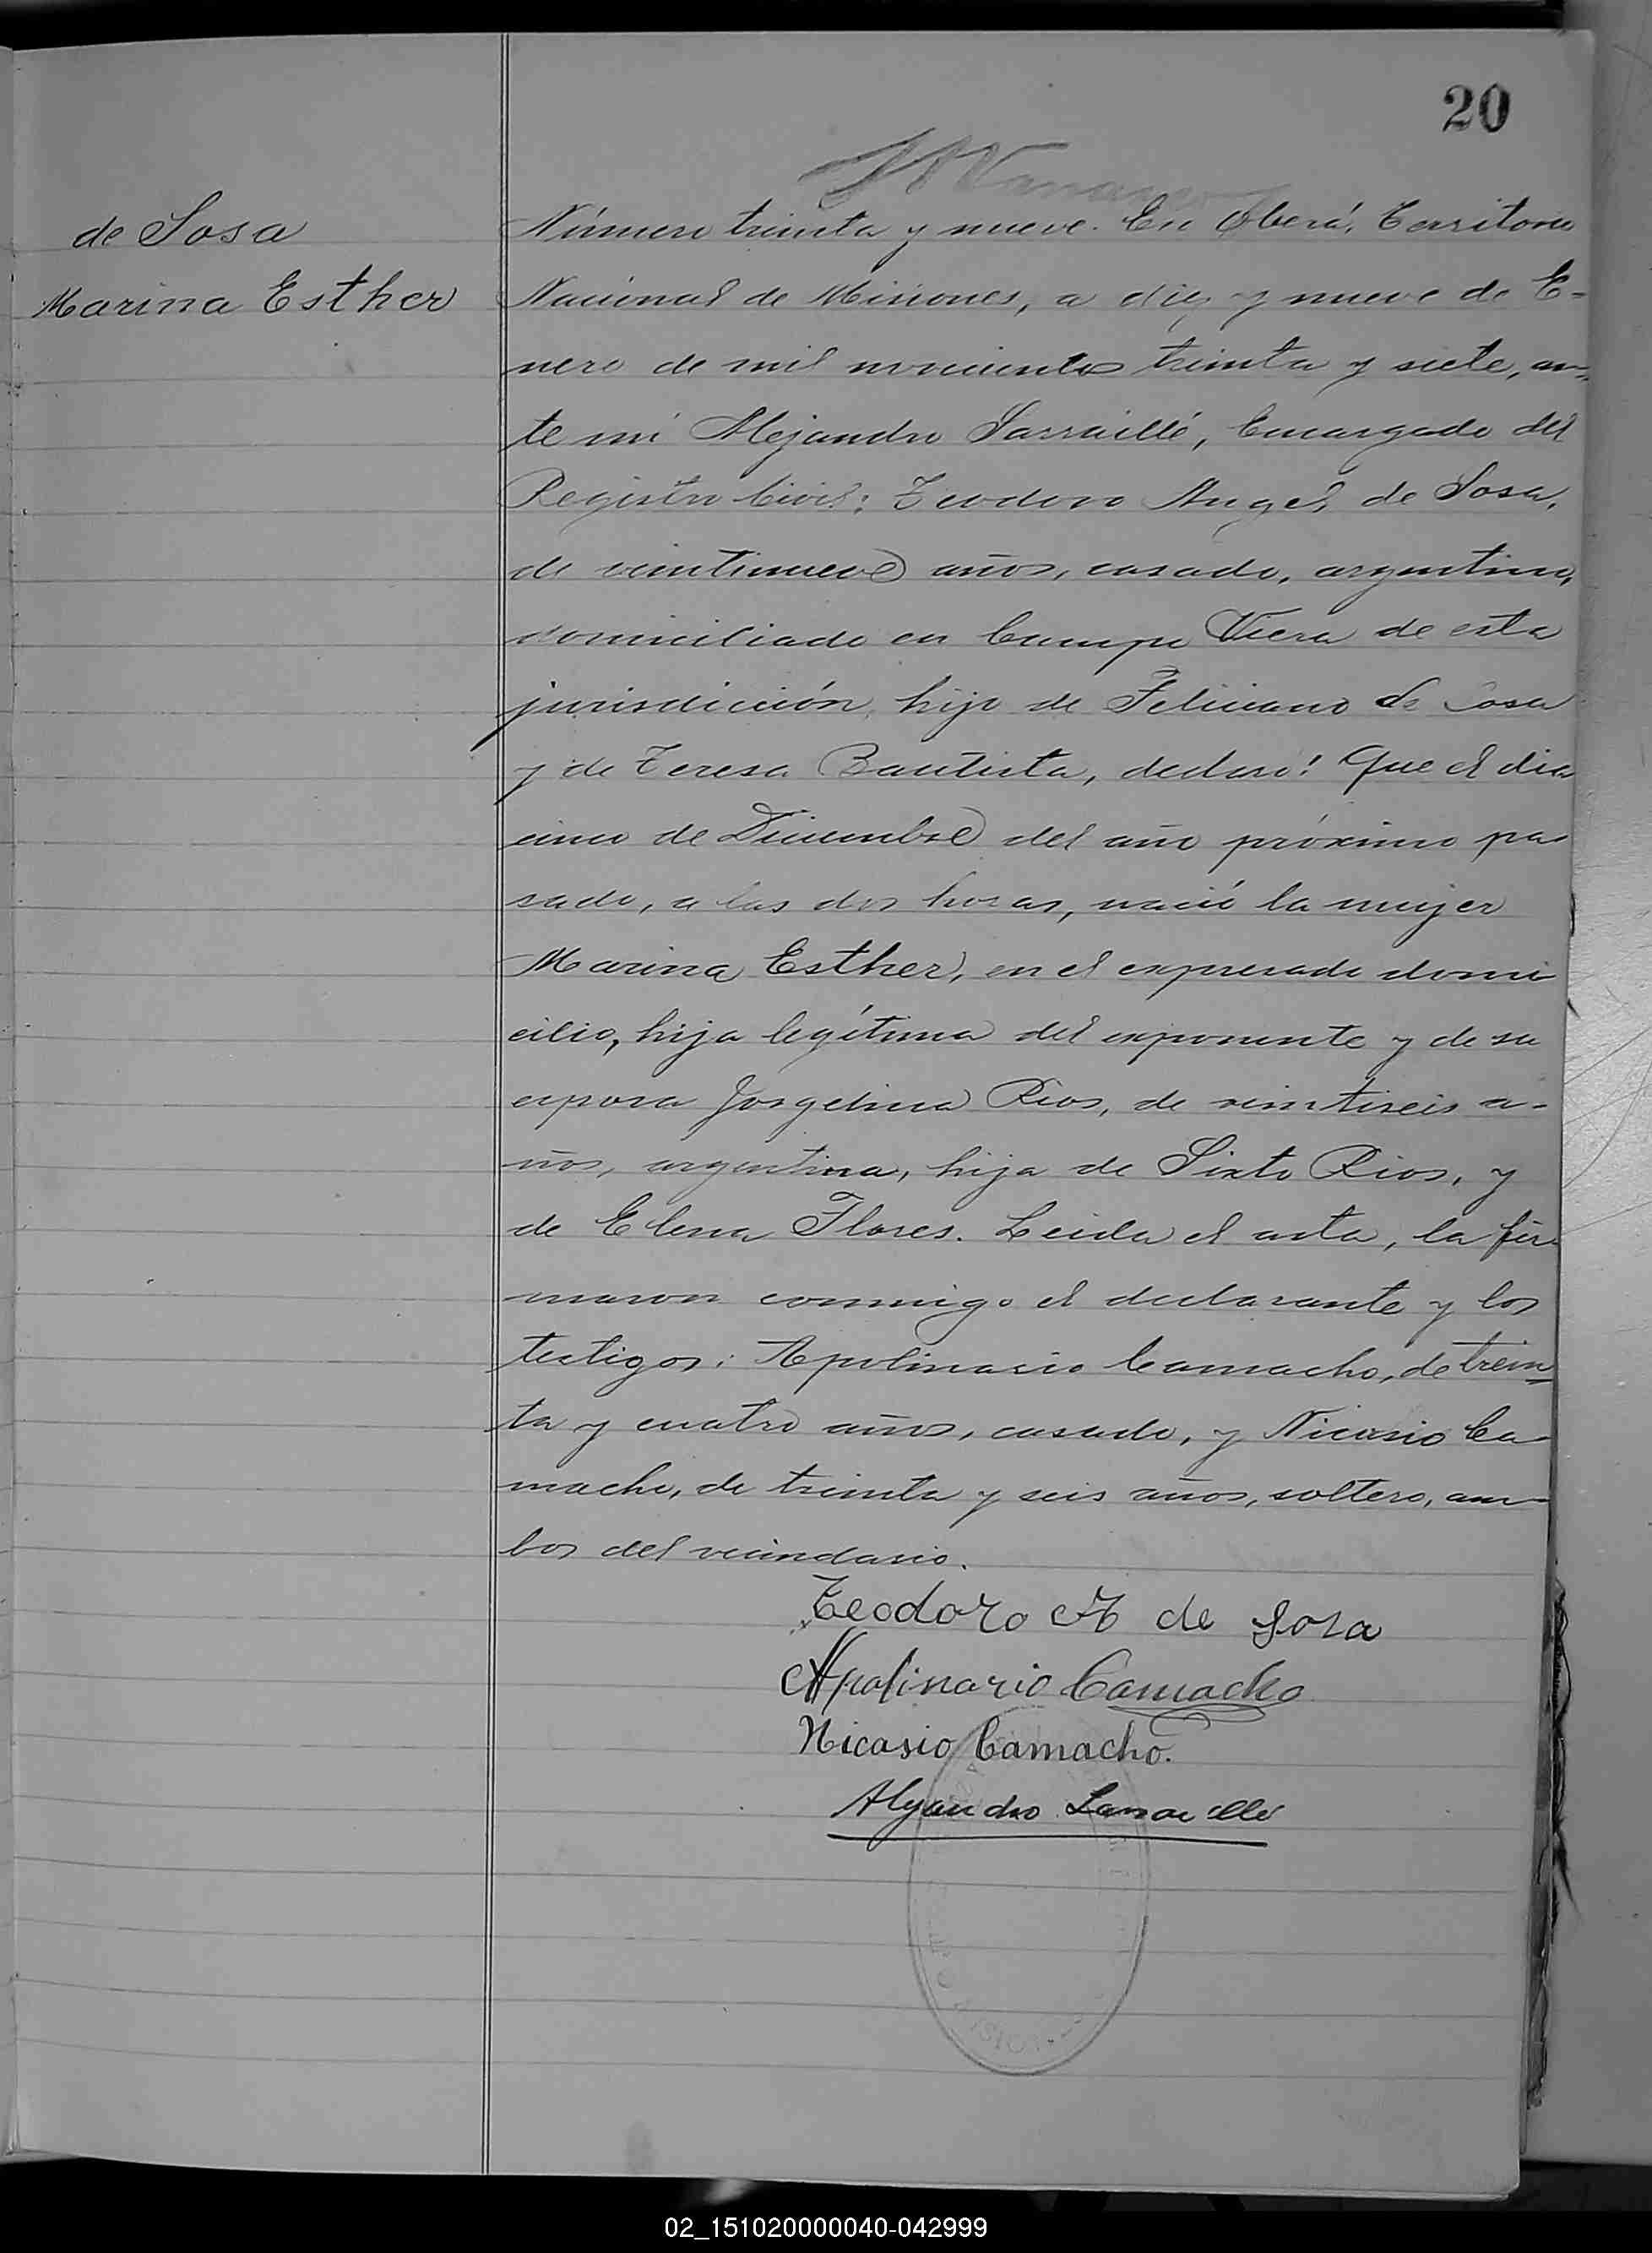 20
de Sosa
Marina Esther
Número treinta y nueve. En Oberá, Territorio
Nacional de Misiones, a diez y nueve de E-
nero de mil novecientos treinta y siete, an-
te mi Alejandro Larraillé, Encargado del
Registro Civil: Teodoro Angel de Sosa,
de veintinueve años, casado, argentino,
domiciliado en Campo Viera de esta
jurisdicción, hijo de Feliciano de Sosa
y de Teresa Bautista, declaró: Que el dia
cinco de Diciembre del año próximo pa-
sado, a las dos horas, nació la mujer
Marina Esther, en el expresado domi
cilio, hija legítima del exponente y de su
esposa Jorgelina Rios, de veintiseis a-
ños, argentina, hija de Sixto Rios, y
de Elena Flores. Leida el acta, la fir
maron conmigo el declarante y los
testigos: Apolinario Camacho, de trein
ta y cuatro años, casado, y Nicasio Ca-
macho, de treinta y seis años, soltero, am-
bos del vecindario.
Teodoro A de Sosa
Apolinario Camacho
Nicasio Camacho.
Alejandro Larraillé
02_151020000040-042999